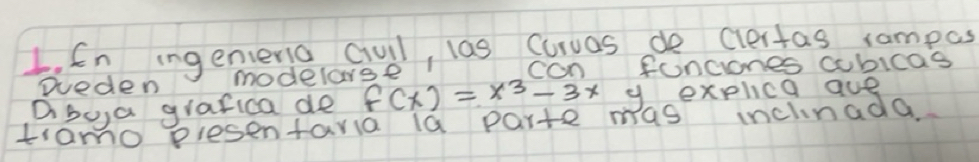 1. En ingenieria civil, las curvas de ciertas rampas
pueden modelarse, con funciones cubicas
Dibuja grafica de f(x) = x³ - 3x y explica que
tramo presentaria la parte mas inclinada.